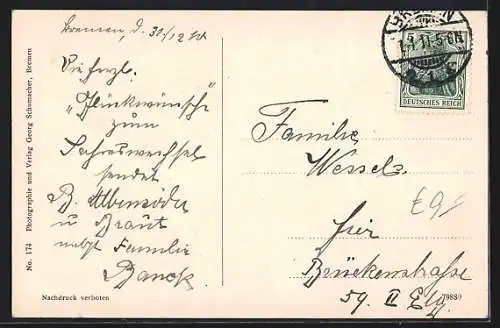 Bremen, d. 31/12 10
Die herzl.
"Glückwünsche"
zum
Jahreswechsel
sendet
B.
u Braut
nebst Familie
Banck.
Familie
Wessels
hier
Brückenstrasse
59. II Etg.
BREMEN
1.1.11. 5-6 N
DEUTSCHES REICH
€9,-
79880
No. 174 Photographie und Verlag Georg Schumacher, Bremen
Nachdruck verboten